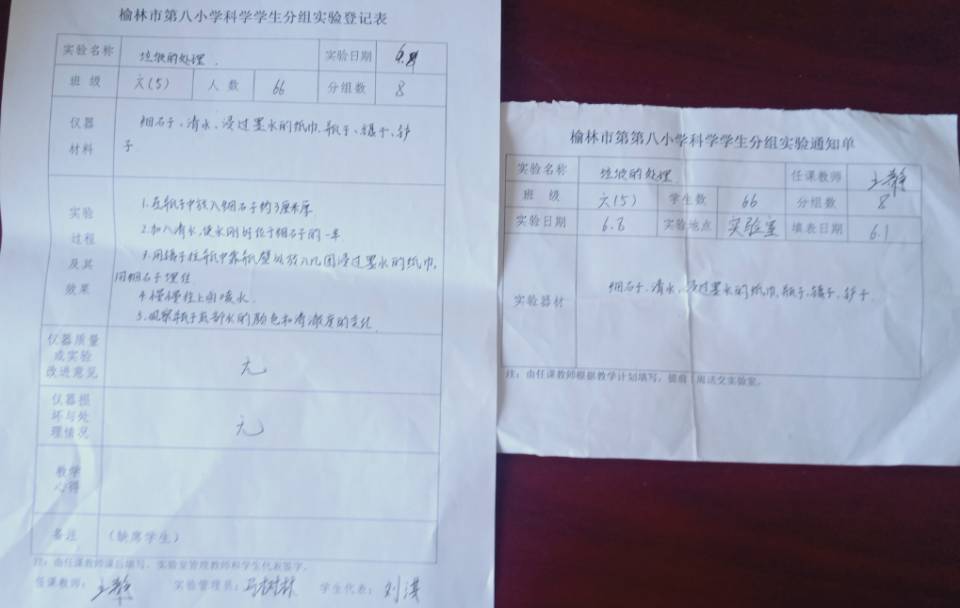 榆林市第八小学科学学生分组实验登记表
实验名称 垃圾的处理 实验日期
班级 六(5) 人数 66 分组数 8
仪器材料 细石子、清水、浸过墨水的纸巾、瓶子、镊子、铲
子
实验过程及其效果
1.在瓶子中放入细石子约3厘米厚
2.加入清水,使水刚好位于细石子的一半
3.用镊子往瓶中靠瓶壁处放入几团浸过墨水的纸巾,
用细石子埋住
4.慢慢往上面喷水.
5.观察瓶子底部水的颜色和清澈度的变化
仪器质量或实验改进意见 无
仪器损坏与处理情况 无
教学心得
备注 (缺席学生)
注:由任课教师课后填写,实验室管理教师和学生代表签字。
任课教师: 实验管理员:马树林 学生代表:刘淇
榆林市第第八小学科学学生分组实验通知单
实验名称 垃圾的处理 任课教师
班级 六(5) 学生数 66 分组数 8
实验日期 6.8 实验地点 实验室 填表日期 6.1
实验器材 细石子、清水、浸过墨水的纸巾、瓶子、镊子、铲子
注:由任课教师根据教学计划填写,提前一周送交实验室。